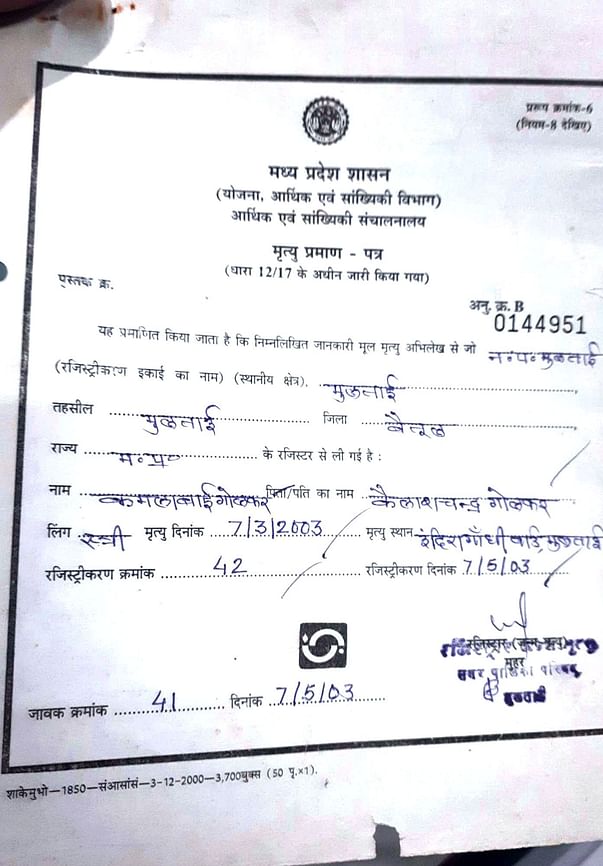 प्ररूप क्रमांक-6
(नियम-8 देखिए)
मध्य प्रदेश शासन
(योजना, आर्थिक एवं सांख्यिकी विभाग)
आर्थिक एवं सांख्यिकी संचालनालय
मृत्यु प्रमाण - पत्र
(धारा 12/17 के अधीन जारी किया गया)
पुस्तक क्र.
अनु. क्र. B
0144951
यह प्रमाणित किया जाता है कि निम्नलिखित जानकारी मूल मृत्यु अभिलेख से जो न॰प॰मुलताई
(रजिस्ट्रीकरण इकाई का नाम) (स्थानीय क्षेत्र). मुलताई
तहसील मुलताई जिला बैतूल
राज्य म॰प्र॰ के रजिस्टर से ली गई है :
नाम कमलाबाई गोलकर पिता/पति का नाम कैलाशचन्द्र गोलकर
लिंग स्त्री मृत्यु दिनांक 7/3/2003 मृत्यु स्थान इंदिरागाँधी वार्ड, मुलताई
रजिस्ट्रीकरण क्रमांक 42 रजिस्ट्रीकरण दिनांक 7/5/03
रजिस्ट्रार (जन्म-मृत्यु)
मुहर
मुलताई
जावक क्रमांक 41 दिनांक 7/5/03
शाकेमुभो—1850—संआसांसं—3-12-2000—3,700बुक्स (50 पृ.×1).